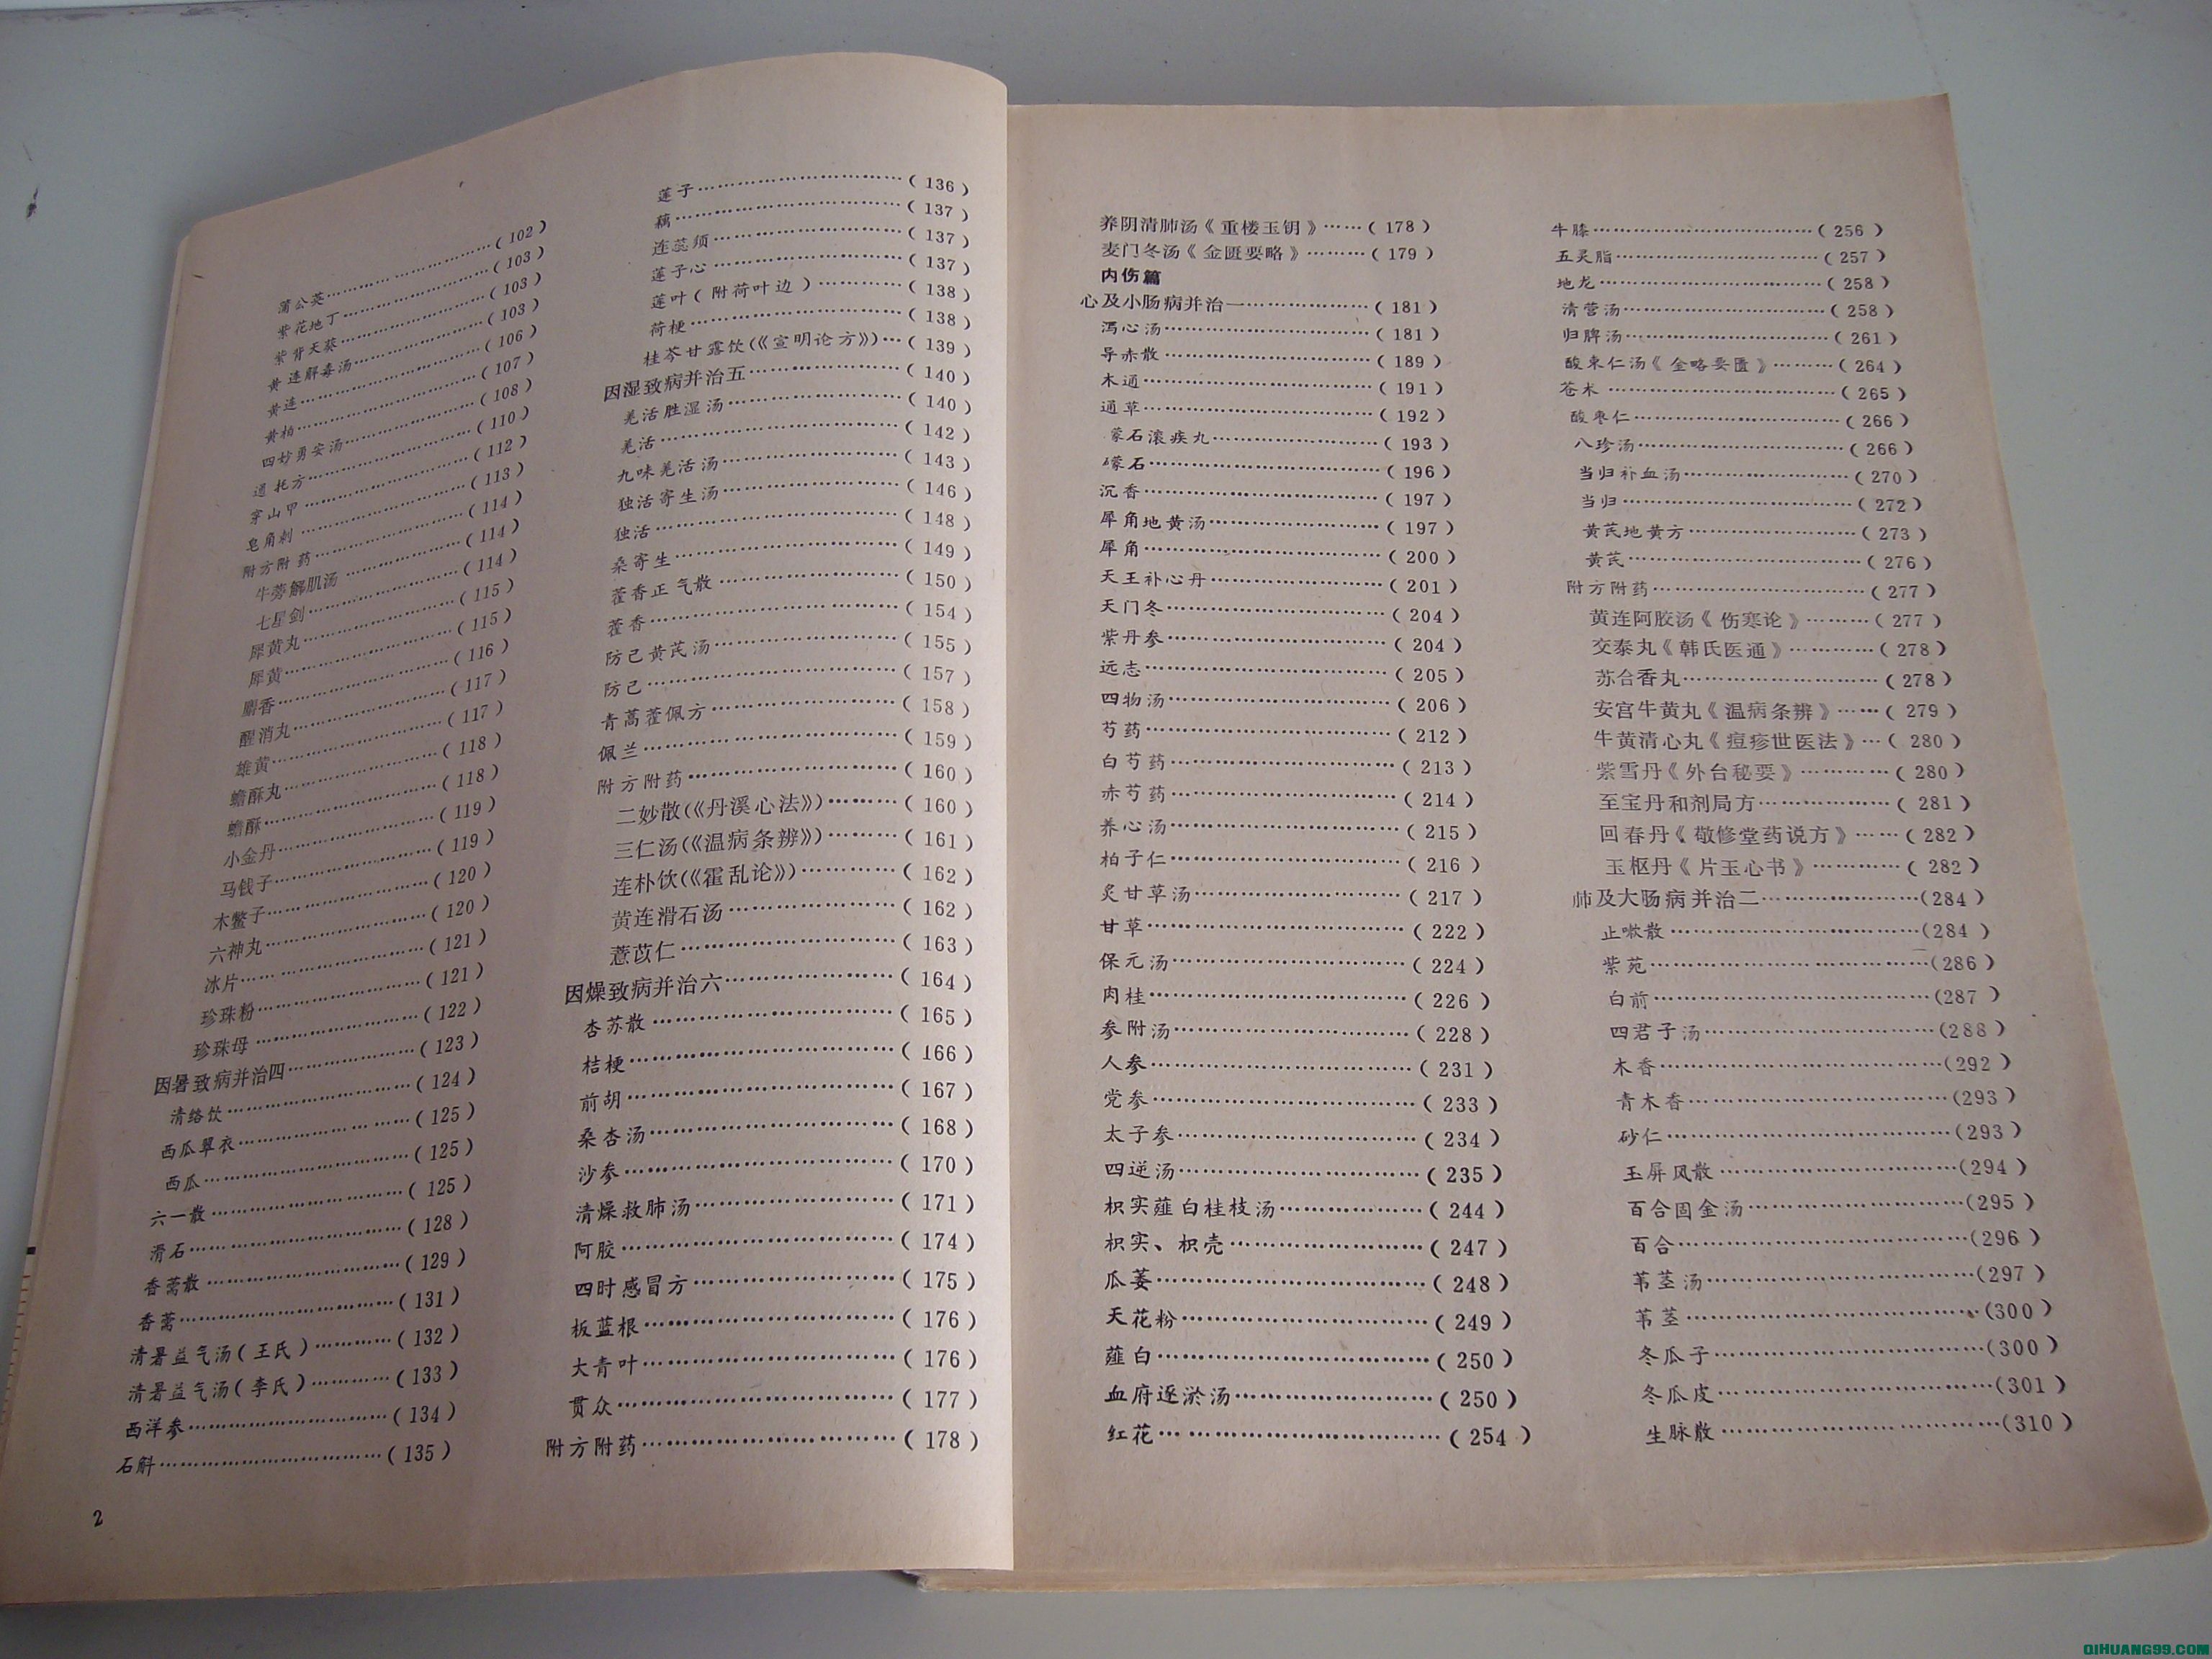 蒲公英…………………………(102)
紫花地丁………………………(103)
紫背天葵………………………(103)
黄连解毒汤……………………(103)
黄连……………………………(106)
黄柏……………………………(107)
四妙勇安汤……………………(108)
透托方…………………………(110)
穿山甲…………………………(112)
皂角刺…………………………(113)
附方附药………………………(114)
牛蒡解肌汤……………………(114)
七星剑…………………………(114)
犀黄丸…………………………(115)
犀黄……………………………(115)
麝香……………………………(116)
醒消丸…………………………(117)
雄黄……………………………(117)
蟾酥丸…………………………(118)
蟾酥……………………………(118)
小金丹…………………………(119)
马钱子…………………………(119)
木鳖子…………………………(120)
六神丸…………………………(120)
冰片……………………………(121)
珍珠粉…………………………(121)
珍珠母…………………………(122)
因暑致病并治四………………(123)
清络饮…………………………(124)
西瓜翠衣………………………(125)
西瓜……………………………(125)
六一散…………………………(125)
滑石……………………………(128)
香薷散…………………………(129)
香薷……………………………(131)
清暑益气汤(王氏)…………(132)
清暑益气汤(李氏)…………(133)
西洋参…………………………(134)
石斛……………………………(135)
2
莲子……………………………(136)
藕………………………………(137)
连蕊须…………………………(137)
莲子心…………………………(137)
莲叶(附荷叶边)……………(138)
荷梗……………………………(138)
桂苓甘露饮(《宣明论方》)…(139)
因湿致病并治五………………(140)
羌活胜湿汤……………………(140)
羌活……………………………(142)
九味羌活汤……………………(143)
独活寄生汤……………………(146)
独活……………………………(148)
桑寄生…………………………(149)
藿香正气散……………………(150)
藿香……………………………(154)
防己黄芪汤……………………(155)
防己……………………………(157)
青蒿藿佩方……………………(158)
佩兰……………………………(159)
附方附药………………………(160)
二妙散(《丹溪心法》)………(160)
三仁汤(《温病条辨》)………(161)
连朴饮(《霍乱论》)…………(162)
黄连滑石汤……………………(162)
薏苡仁…………………………(163)
因燥致病并治六………………(164)
杏苏散…………………………(165)
桔梗……………………………(166)
前胡……………………………(167)
桑杏汤…………………………(168)
沙参……………………………(170)
清燥救肺汤……………………(171)
阿胶……………………………(174)
四时感冒方……………………(175)
板蓝根…………………………(176)
大青叶…………………………(176)
贯众……………………………(177)
附方附药………………………(178)
养阴清肺汤《重楼玉钥》……(178)
麦门冬汤《金匮要略》………(179)
内伤篇
心及小肠病并治一……………(181)
泻心汤…………………………(181)
导赤散…………………………(189)
木通……………………………(191)
通草……………………………(192)
礞石滚痰丸……………………(193)
礞石……………………………(196)
沉香……………………………(197)
犀角地黄汤……………………(197)
犀角……………………………(200)
天王补心丹……………………(201)
天门冬…………………………(204)
紫丹参…………………………(204)
远志……………………………(205)
四物汤…………………………(206)
芍药……………………………(212)
白芍药…………………………(213)
赤芍药…………………………(214)
养心汤…………………………(215)
柏子仁…………………………(216)
炙甘草汤………………………(217)
甘草……………………………(222)
保元汤…………………………(224)
肉桂……………………………(226)
参附汤…………………………(228)
人参……………………………(231)
党参……………………………(233)
太子参…………………………(234)
四逆汤…………………………(235)
枳实薤白桂枝汤………………(244)
枳实、枳壳……………………(247)
瓜蒌……………………………(248)
天花粉…………………………(249)
薤白……………………………(250)
血府逐淤汤……………………(250)
红花……………………………(254)
牛膝……………………………(256)
五灵脂…………………………(257)
地龙……………………………(258)
清营汤…………………………(258)
归脾汤…………………………(261)
酸枣仁汤《金略要匮》………(264)
苍术……………………………(265)
酸枣仁…………………………(266)
八珍汤…………………………(266)
当归补血汤……………………(270)
当归……………………………(272)
黄芪地黄方……………………(273)
黄芪……………………………(276)
附方附药………………………(277)
黄连阿胶汤《伤寒论》………(277)
交泰丸《韩氏医通》…………(278)
苏合香丸………………………(278)
安宫牛黄丸《温病条辨》……(279)
牛黄清心丸《痘疹世医法》…(280)
紫雪丹《外台秘要》…………(280)
至宝丹和剂局方………………(281)
回春丹《敬修堂药说方》……(282)
玉枢丹《片玉心书》…………(282)
师及大肠病并治二……………(284)
止嗽散…………………………(284)
紫苑……………………………(286)
白前……………………………(287)
四君子汤………………………(288)
木香……………………………(292)
青木香…………………………(293)
砂仁……………………………(293)
玉屏风散………………………(294)
百合固金汤……………………(295)
百合……………………………(296)
苇茎汤…………………………(297)
苇茎……………………………(300)
冬瓜子…………………………(300)
冬瓜皮…………………………(301)
生脉散…………………………(310)
QIHUANG99.COM